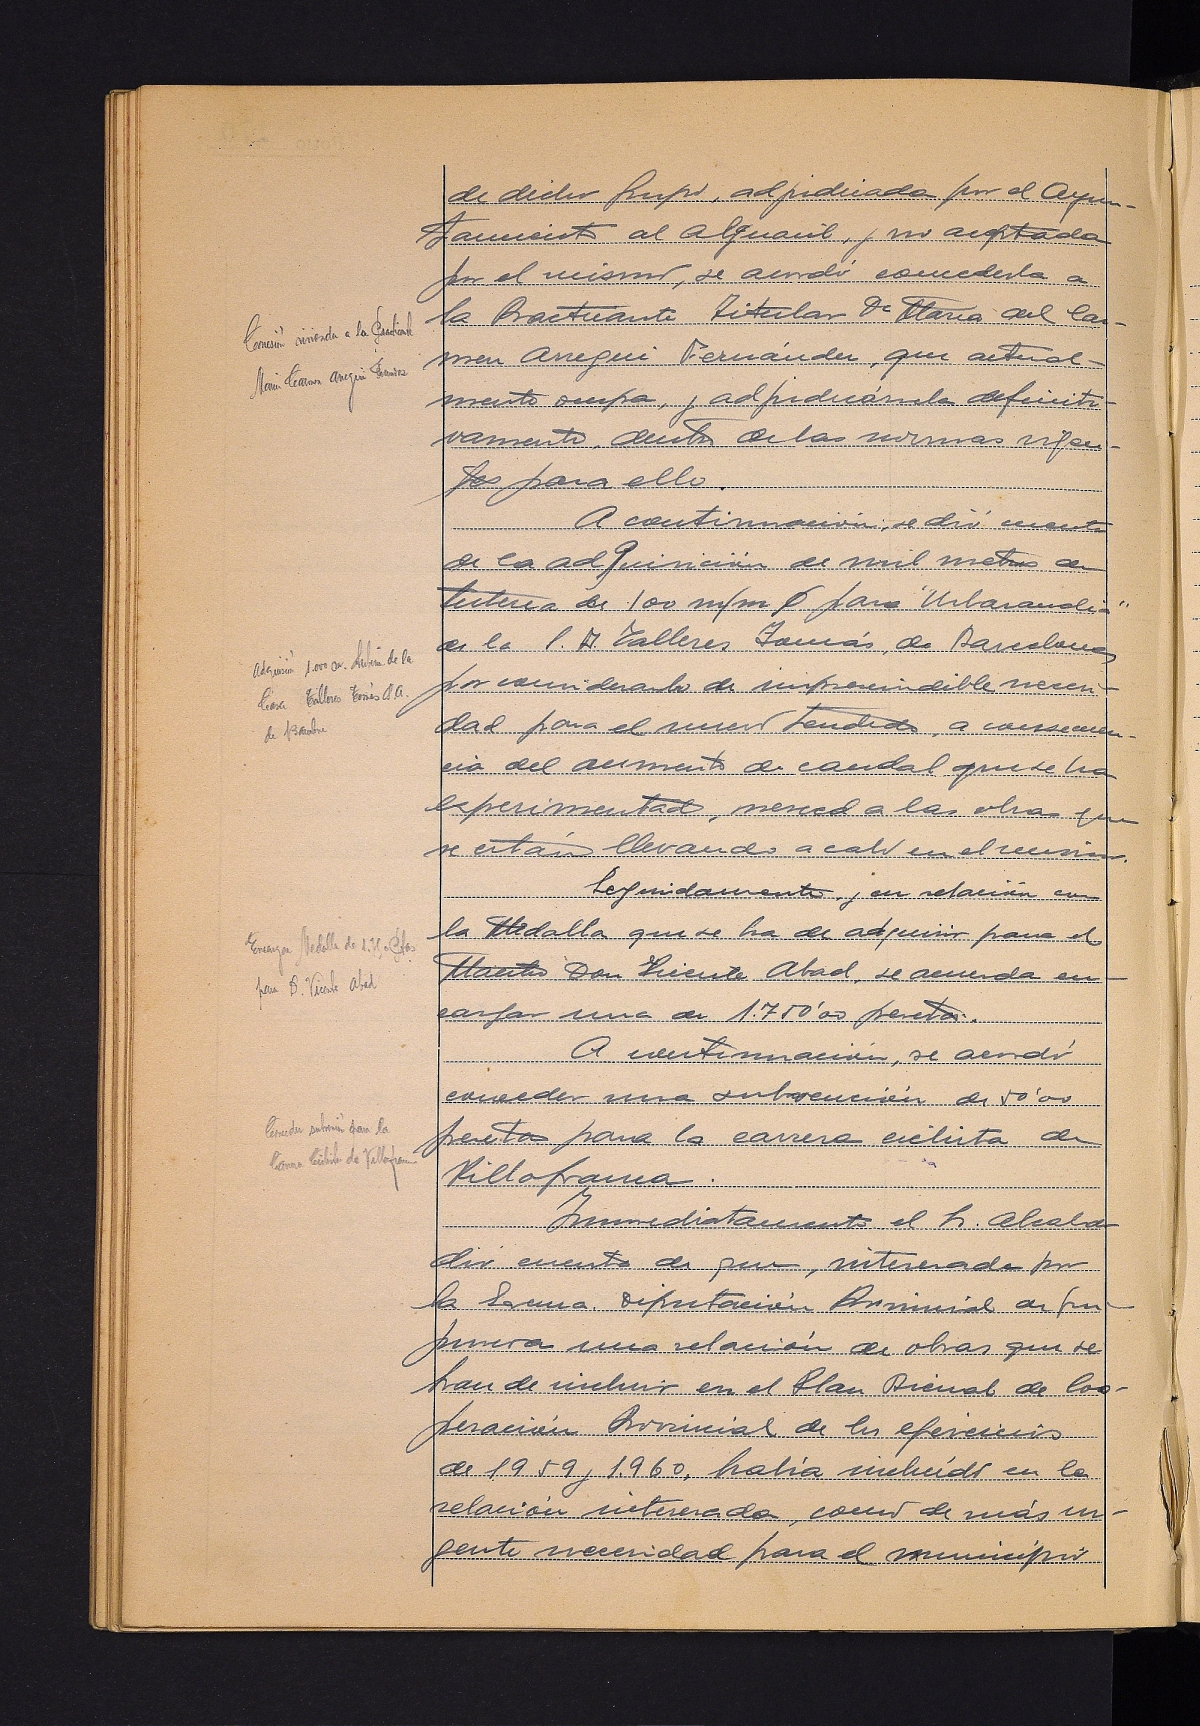 de dicho Grupo, adjudicada por el Ayun-
tamiento al Alguacil, y no aceptada
por el mismo, se acordó concederla a
la Practicante Titular Dª Maria del Car-
men Arregui Fernández, que actual-
mente ocupa, y adjudicársela definiti-
vamente, dentro de las normas vigen-
tes para ello.
A continuación, se dió cuenta
de la adquisición de mil metros de
tuberia de 100 m/m Ø para "Urbarandia"
de la S. A. Talleres Tomás, de Barcelona,
por considerarlo de imprescindible necesi-
dad para el nuevo tendido, a consecuen-
cia del aumento de caudal que se ha
experimentado, merced a las obras que
se están llevando a cabo en el mismo.
Seguidamente, y en relación con
la Medalla que se ha de adquirir para el
Maestro Don Vicente Abad, se acuerda en-
cargar una de 1.750'00 pesetas.
A continuación, se acordó
conceder una subvención de 50'00
pesetas para la carrera ciclista de
Villafranca.
Inmediatamente el Sr. Alcalde
dió cuenta de que, interesada por
la Excma. Diputación Provincial de Gui-
púzcoa una relación de obras que se
han de incluir en el Plan Bienal de Coo-
peración Provincial de los ejercicios
de 1959 y 1.960, había incluído en la
relación interesada, como de más ur-
gente necesidad para el municipio
Cesión vivienda a la Practicante
Maria Carmen Arregui Fernández
Adquisición 1.000 m. tubería de la
Casa Talleres Tomás S.A.
de Barcelona
Encargar Medalla de 1.750 Ptas
para D. Vicente Abad
Conceder subvención para la
Carrera Ciclista de Villafranca